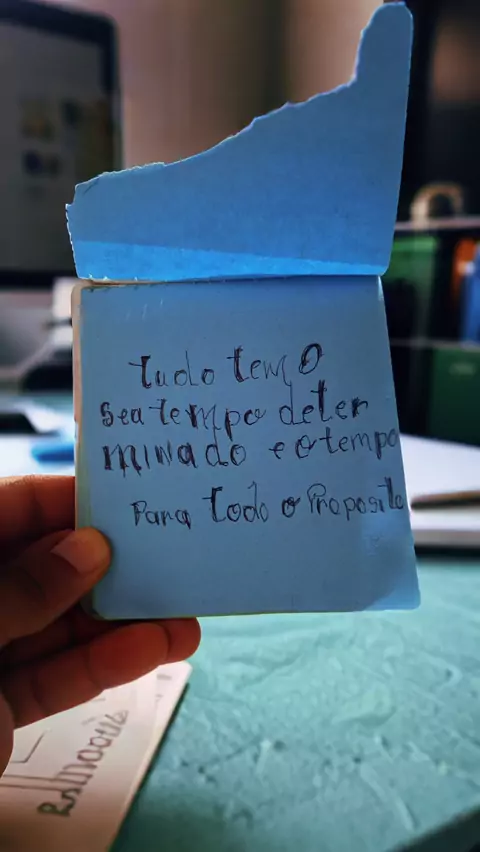 tudo tem O
seu tempo deter
minado e o tempo
Para todo o Proposito